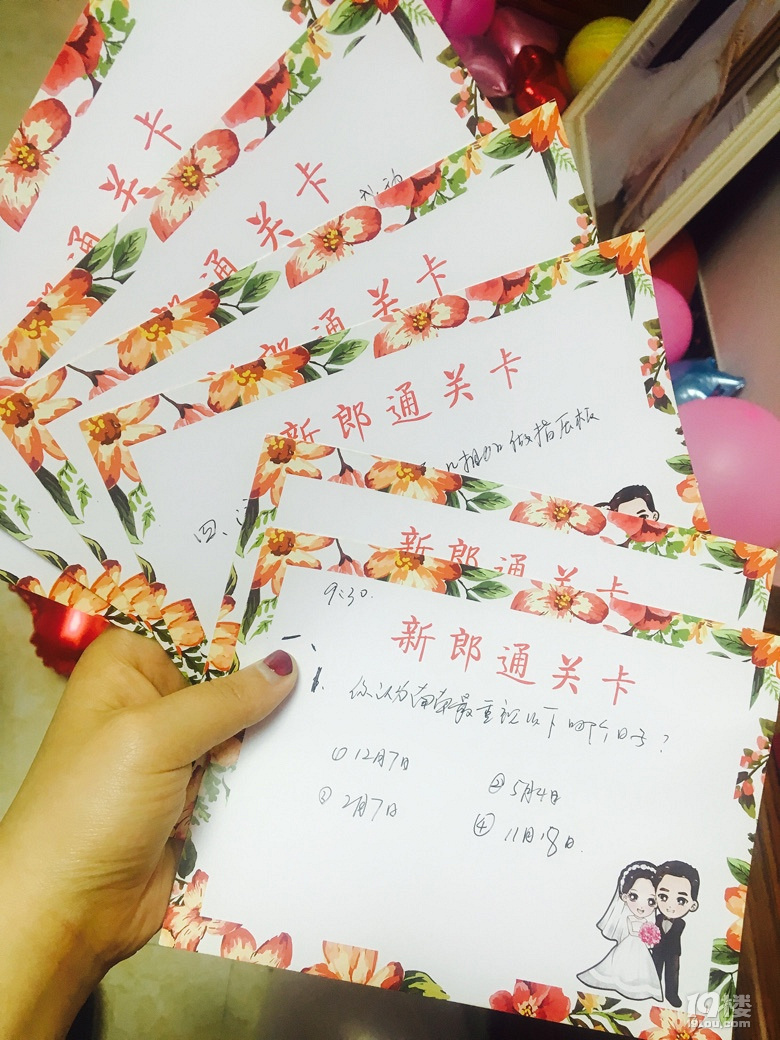 通关卡
郎通关卡
礼物
新郎通关卡
新郎通关卡
做指压板
四、
新郎通关卡
9:30.
新郎通关卡
一、
1. 你认为南南最重视以下哪个日子?
① 12月7日
② 5月4日
③ 2月7日
④ 11月18日.
19楼
19lou.com